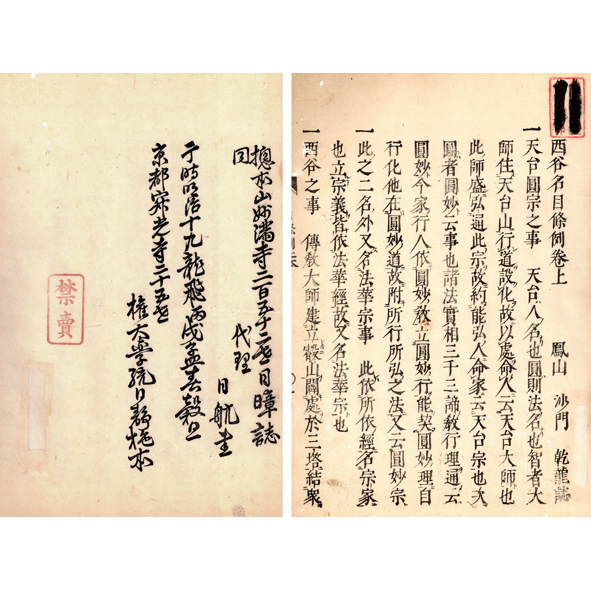 西谷名目條例卷上　鳳山　沙門　乾龍誌
一天台圓宗之事　天台人名也圓則法名也智者大
師住天台山行道設化故以處命人云天台大師也
此師盛弘通此宗故約能弘人命家云天台宗也次
圓者圓妙云事也諸法實相三千三諦教行理通云
圓妙今家行人依圓妙教立圓妙行能契圓妙理自
行化他在圓妙道故附所行所弘之法又云圓妙宗
一此之二名外又名法華宗事　此依所依經名宗家
也立宗義皆依法華經故又名法華宗也
一西谷之事　傳教大師建立叡山關處於三塔結眾
總本山妙滿寺二百五十二世日暲誌
同　代理　日航
于時明治十九龍飛丙戌孟春穀旦
京都寂光寺二十五世
權大學統日靜
禁賣